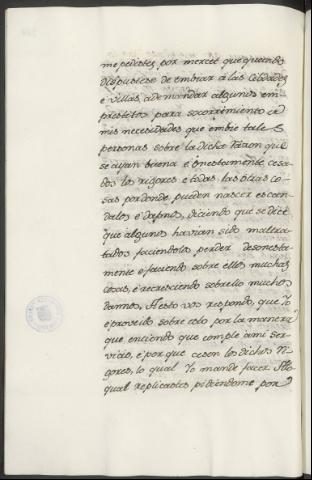 me pedistes por merced que quando
dispusiese de embiar à las Ciudades
è villas, à demandar algunos em-
prestitos para socorrimiento à
mis necesidades que embie tales
personas sobre la dicha razon que
se ayan buena è onestamente, cesa-
dos los rigores è todas las otras co-
sas por donde pueden nascer escan-
dalos è daños, diciendo que se dice
que algunos havian sido maltra-
tados faciendolos perder desonesta-
mente è faciendo sobre ellos muchas
cosas, è recresciendo sobrello muchos
dannos, A esto vos respondo, que Yo
è proveido sobre esto por la manera
que entiendo que cumple à mi ser-
vicio, è por que cesen los dichos ri-
gores, lo qual Yo mandè facer. A lo
qual replicastes pidiendome por